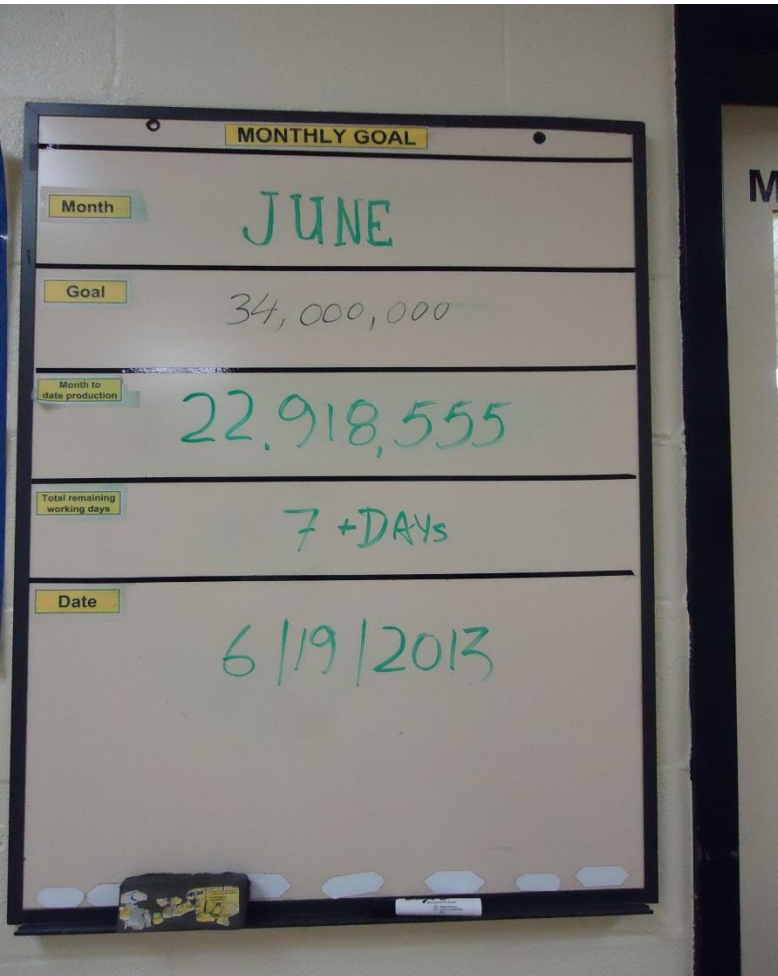 MONTHLY GOAL
Month
JUNE
Goal
34,000,000
Month to
date production
22,918,555
Total remaining
working days
7 +DAYs
Date
6/19/2013
M